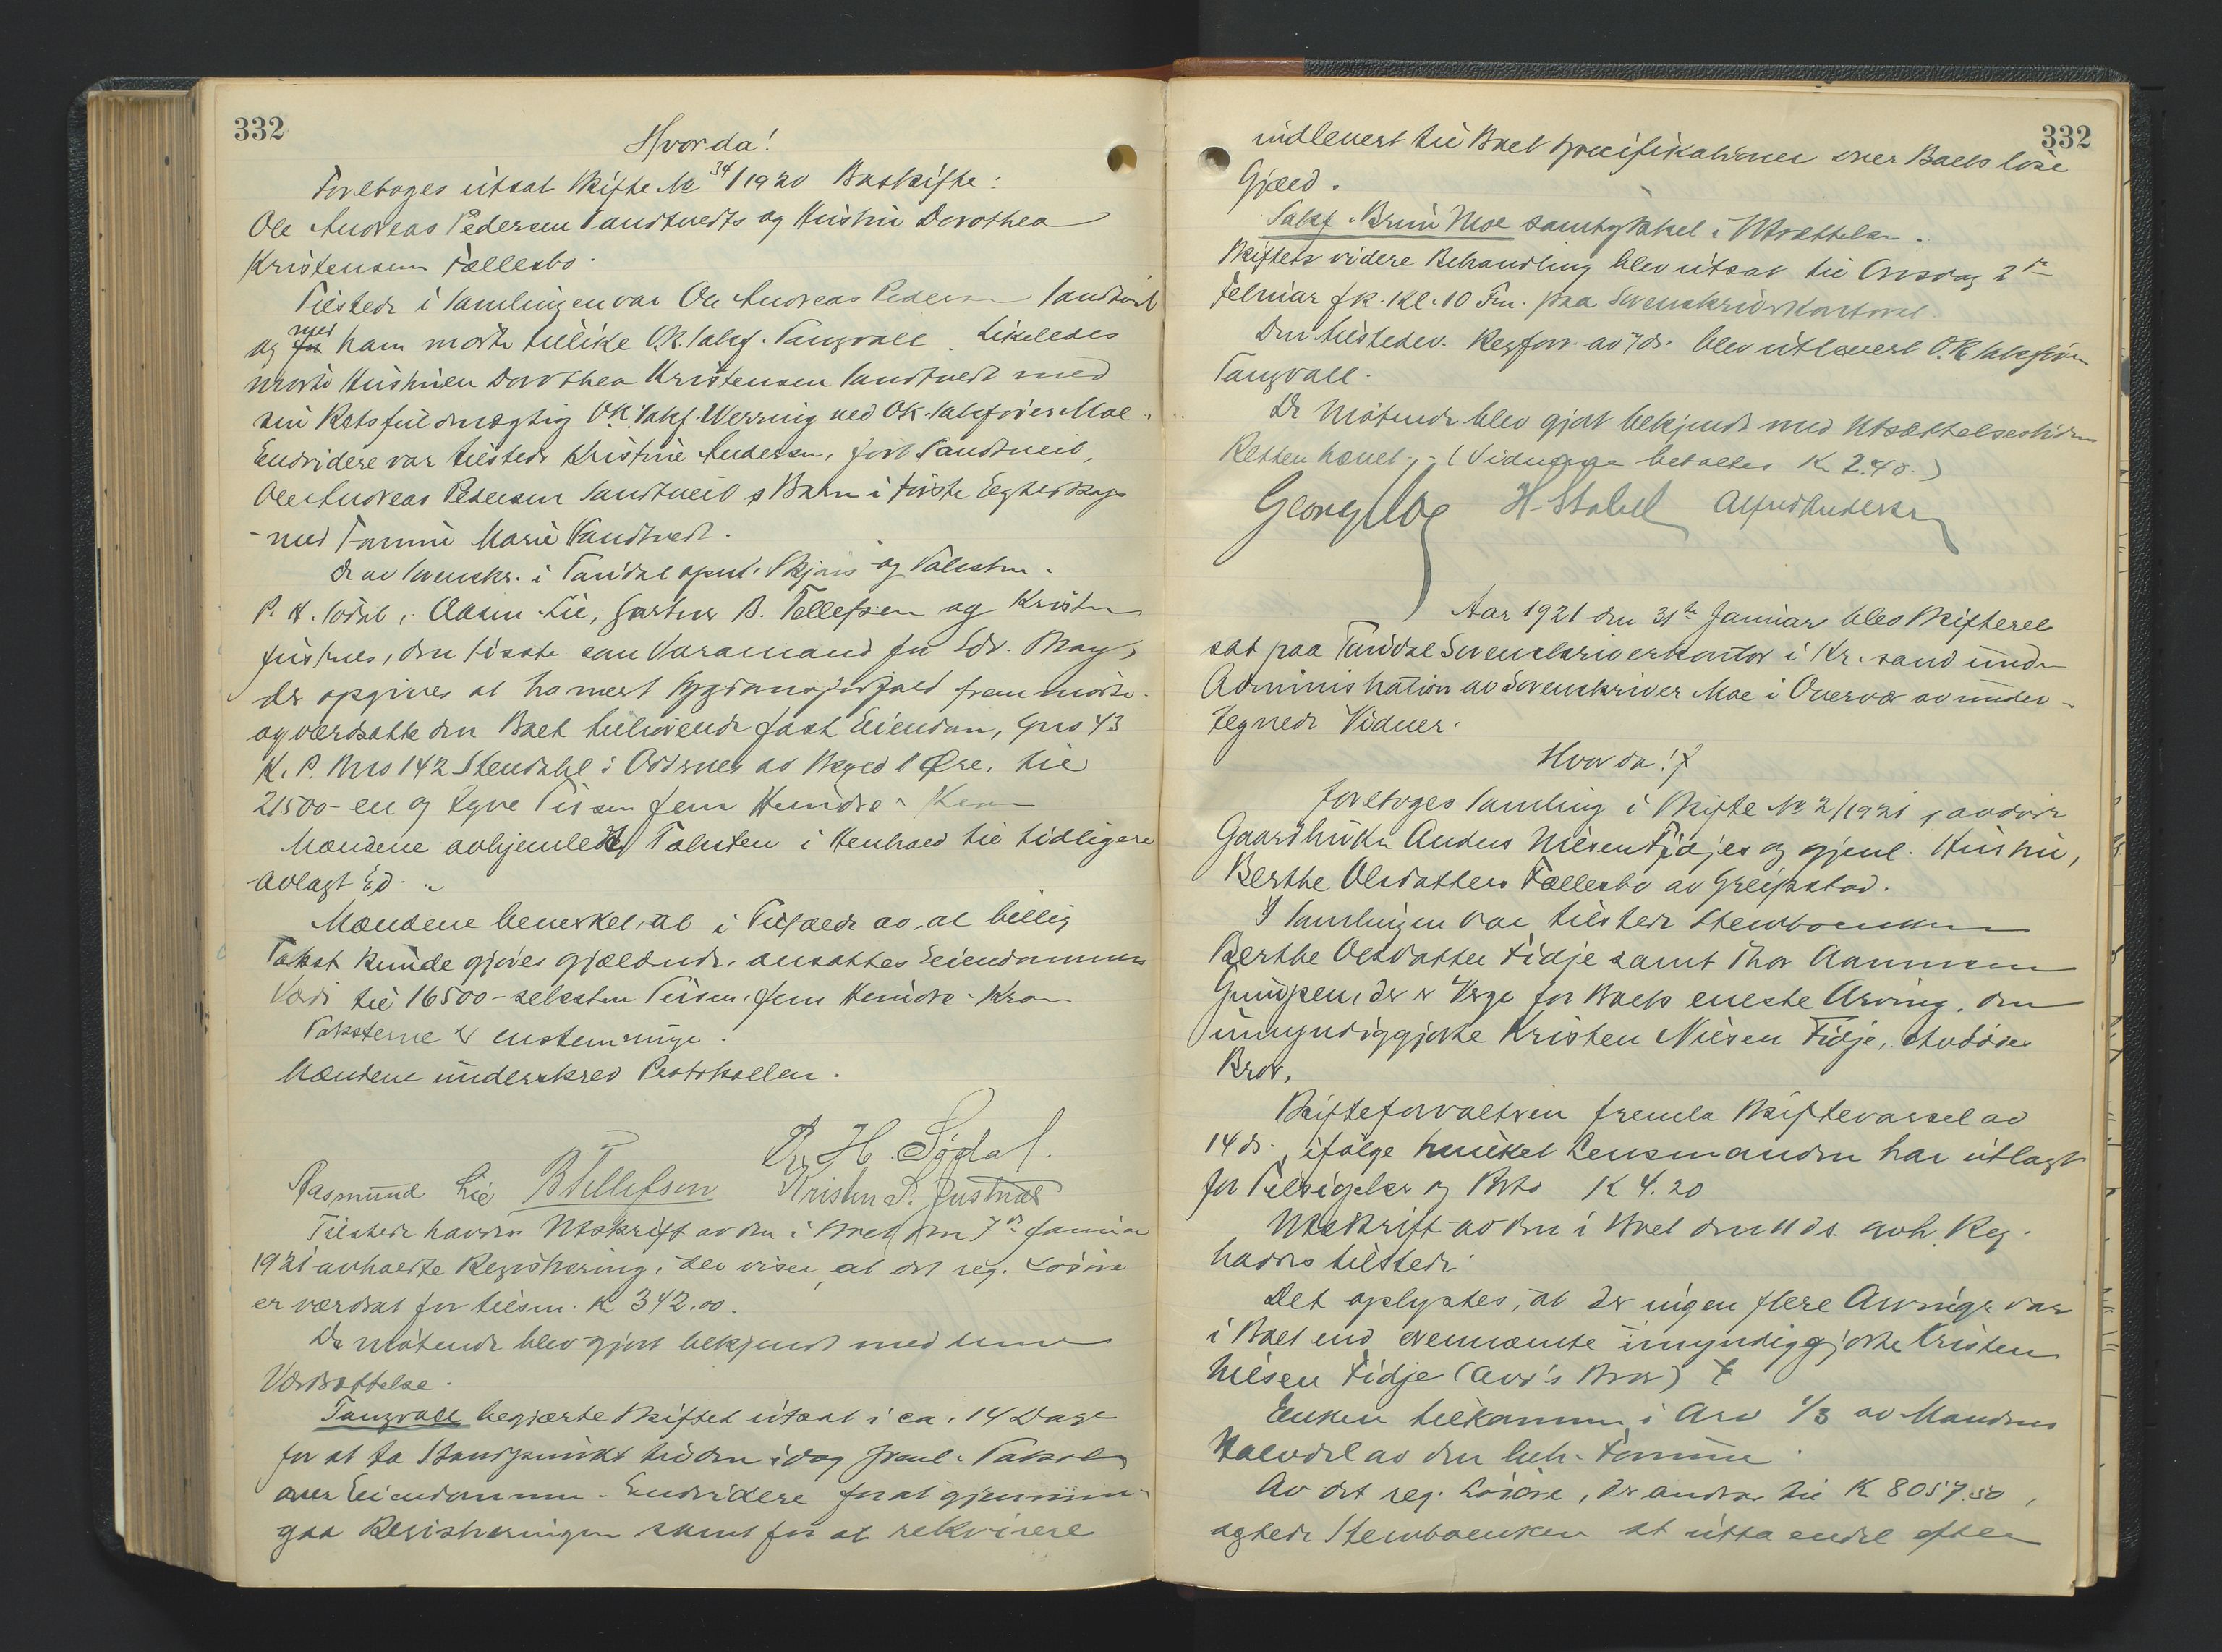 332
Hvorda!
Foretoges utsat Skifte № 34/1920 Boskifte:
Ole Andreas Pedersen Sandtvedts og Hustru Dorothea
Kristensens Fællesbo.
Tilstede i Samlingen var Ole Andreas Pedersen Sandtveit
og med ham møtte tillike O.R. Sakf. Tangvall. Likeledes
møtte Hustruen Dorothea Kristensen Sandtvedt med
sin Retsfuldmægtig O.R. Sakf. Werring ved O.R. Sakfører Moe.
Endvidere var tilstede Kristine Andersen, født Sandtveit,
Ole Andreas Pedersen Sandtveit s Barn i første Egteskap
- med Tomine Marie Sandtvedt.
De av Sorenskr. i Torridal opn. Skjøns og Takstm.
P. H. Sødal, Aasm. Lie, Gartner B. Tellefsen og Kristen
Justnes, den sidste som Varamand for Edv. Moy,
der opgives at ha været sygdomsforfald fremmøtte
og værdsatte den Boet tilhørende faste Eiendom, Gno 43
K. P. Bno 142 Stendahl i Oddernes av Skyld 1 Øre, til
21500 - en og tyve Tusen fem Hundre - Kroner
Mændene avhjemlet Taksten i Henhold til tidligere
avlagt Ed. -
Mændene bemerket, at i Tilfælde av, at billig
Takst kunde gjøres gjældende, ansattes Eiendommens
Værdi til 16500 - seksten Tusen, fem Hundre - Kroner
Taksterne er enstemmige.
Mændene underskrev Protokollen.
P. H. Sødal.
Aasmund Lie B Tellefsen Kristen S. Justnæs
Tilstede havdes Utskrift av den i Boet den 7de Januar
1921 avholdte Registrering, der viser, at det reg. Løsøre
er værdsat for tilsm. K 342.00.
De møtende blev gjort bekjendt med denne
Værdsættelse.
Tangvall begjærte Skiftet utsat i ca. 14 Dage
for at ta Standpunkt til den idag freml. Takst
over Eiendommen. Endvidere for at gjennem-
gaa Registreringen samt for at rekvirere
332
indlevert til Boet Specifikationer over Boets løse
Gjæld.
Sakf. Bruun Moe samtykket i Utsættelsen.
Skiftets videre Behandling blev utsat til Onsdag 2de
Februar f.k. Kl. 10 Fm. paa Sorenskriverkontoret.
Den tilstedev. Regforr. av 7 ds. blev utlevert O.R. Sakfører
Tangvall.
De Møtende blev gjort bekjendt med Utsættelsestiden
Retten hævet. - (Vidnerne betaltes K. 2.40.)
Georg Moe H. Stabel Alfred Andersen
Aar 1921 den 31te Januar blev Skifteret
sat paa Torridal Sorenskriverkontor i Kr.sand under
Administration av Sorenskriver Moe i Overvær av under-
tegnede Vidner.
Hvorda!
Foretoges Samling i Skifte № 2/1921, avdøde
Gaardbruker Anders Nilsen Fidjes og gjenl. Hustru,
Berthe Olsdatters Fællesbo av Greipstad.
I Samlingen var tilstede Stervboenken
Berthe Olsdatter Fidje samt Thor Aanensen
der er Verge for Boets eneste Arving, den
umyndiggjorte Kristen Nilsen Fidje, Avdødes
Bror.
Skifteforvalteren fremla Skiftevarsel av
14 ds., ifølge hvilket Lensmanden har utlagt
for Tilsigelse og Porto K 4.20
Utskrift av den i Boet den 11 ds. avh. Reg.
havdes tilstede.
Det oplystes, at der ingen flere Arvinger var
i Boet end ovennævnte umyndiggjorte Kristen
Nilsen Fidje (Avd's Bror)
Enken tilkommer i Arv 1/3 av Mandens
Halvdel av den beh. Formue.
Av det reg. Løsøre, der andrar til K 8057.50,
agtede Stervboenken at utta endel efter